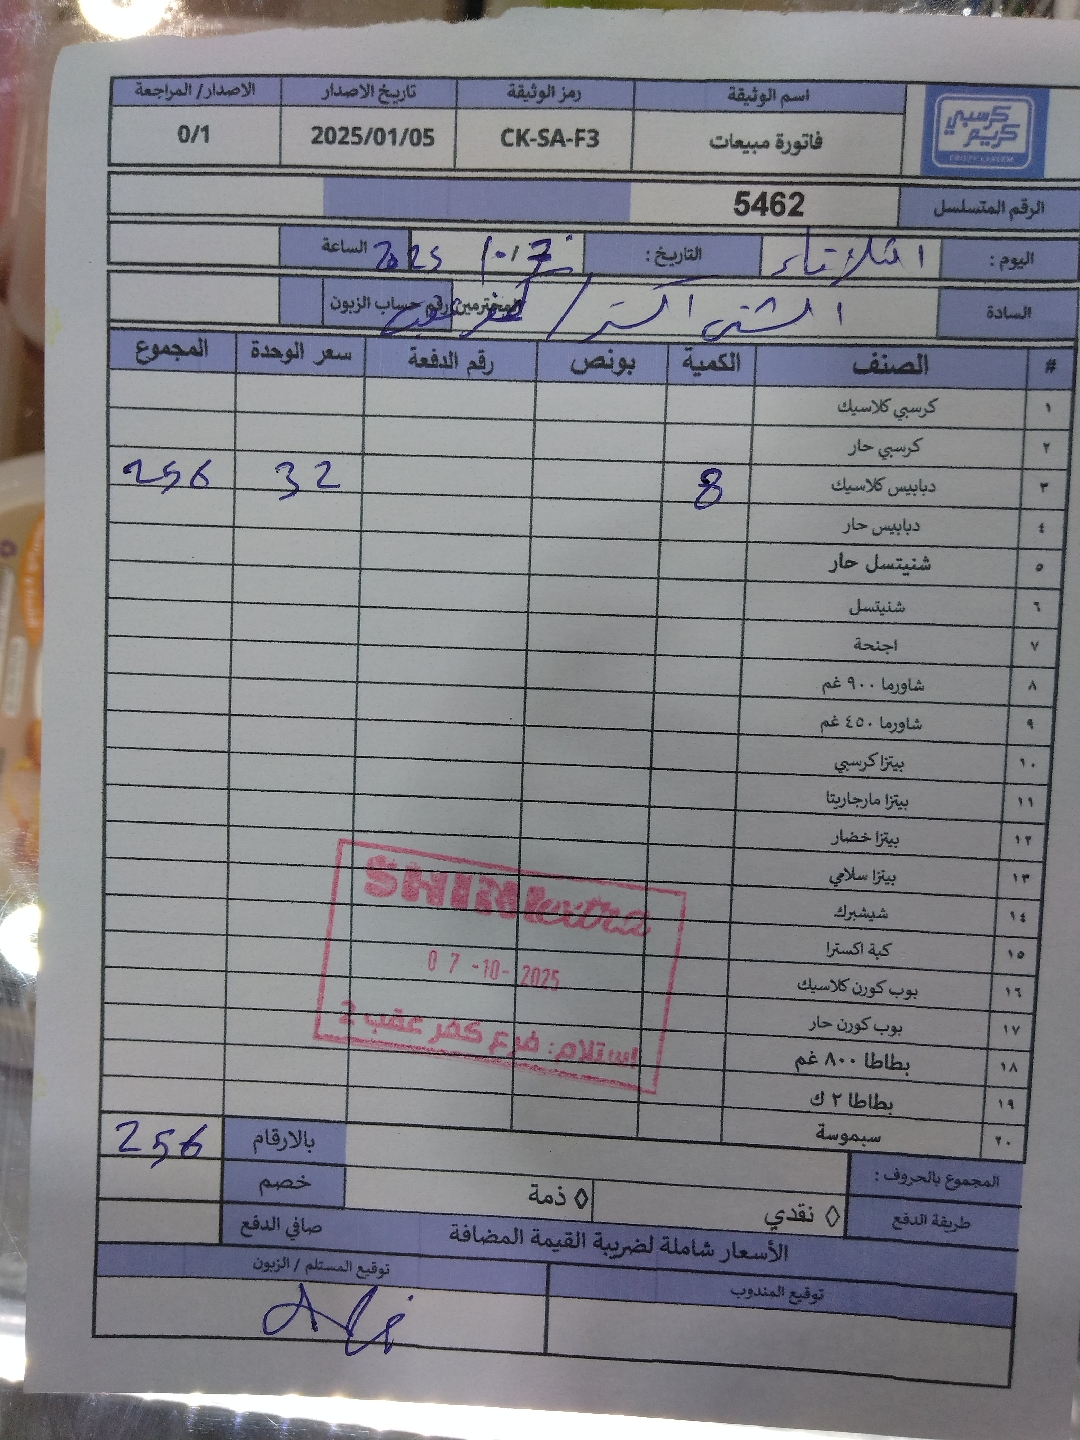 كرسبي كريم
اسم الوثيقة رمز الوثيقة تاريخ الاصدار الاصدار/ المراجعة
فاتورة مبيعات CK-SA-F3 2025/01/05 0/1
الرقم المتسلسل 5462
اليوم : الثلاثاء التاريخ : 7/10/2025 الساعة
السادة الشني اكسترا / كفر عقب المحترمين رقم حساب الزبون
# الصنف الكمية بونص رقم الدفعة سعر الوحدة المجموع
١ كرسبي كلاسيك
٢ كرسبي حار
٣ دبابيس كلاسيك 8 32 256
٤ دبابيس حار
٥ شنيتسل حار
٦ شنيتسل
٧ اجنحة
٨ شاورما ٩٠٠ غم
٩ شاورما ٤٥٠ غم
١٠ بيتزا كرسبي
١١ بيتزا مارجاريتا
١٢ بيتزا خضار
١٣ بيتزا سلامي
١٤ شيشبرك
١٥ كبة اكسترا
١٦ بوب كورن كلاسيك
١٧ بوب كورن حار
١٨ بطاطا ٨٠٠ غم
١٩ بطاطا ٢ ك
٢٠ سبموسة
SHINI extra
07-10-2025
إستلام: فرع كفر عقب 2
المجموع بالحروف : بالارقام 256
طريقة الدفع ◊ نقدي ◊ ذمة خصم
الأسعار شاملة لضريبة القيمة المضافة صافي الدفع
توقيع المندوب توقيع المستلم / الزبون
Ali